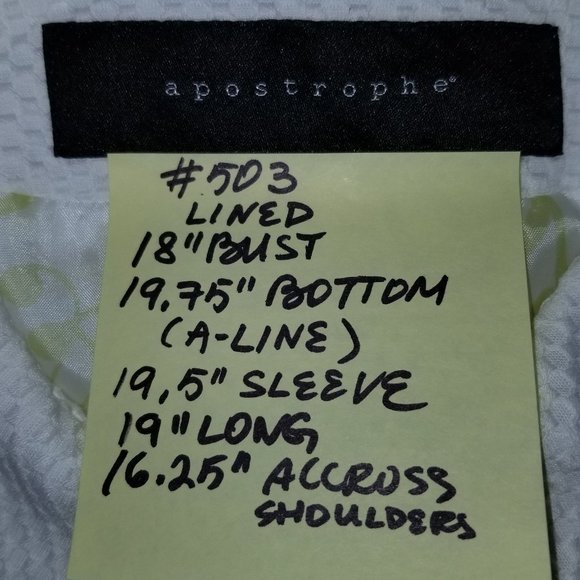 apostrophe®
#503
LINED
18" BUST
19.75" BOTTOM
(A-LINE)
19.5" SLEEVE
19" LONG
16.25" ACCROSS
SHOULDERS